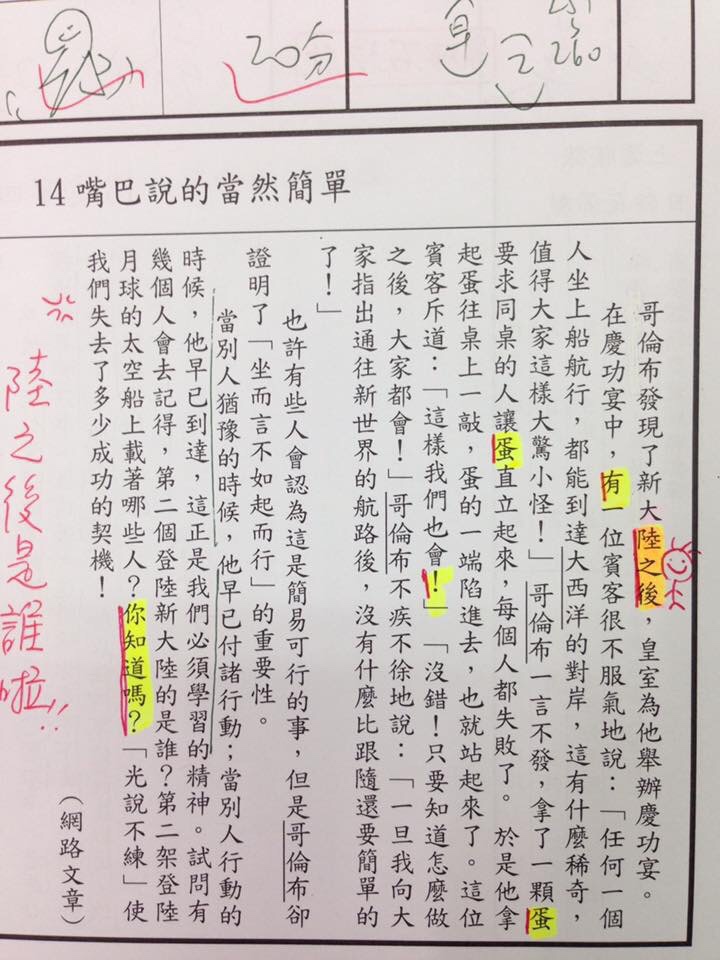 20分
早
260
14 嘴巴說的當然簡單
哥倫布發現了新大陸之後，皇室為他舉辦慶功宴。
在慶功宴中，有一位賓客很不服氣地說：「任何一個
人坐上船航行，都能到達大西洋的對岸，這有什麼稀奇，
值得大家這樣大驚小怪！」哥倫布一言不發，拿了一顆蛋
要求同桌的人讓蛋直立起來，每個人都失敗了。於是他拿
起蛋往桌上一敲，蛋的一端陷進去，也就站起來了。這位
賓客斥道：「這樣我們也會！」「沒錯！只要知道怎麼做
之後，大家都會！」哥倫布不疾不徐地說：「一旦我向大
家指出通往新世界的航路後，沒有什麼比跟隨還要簡單的
了！」
也許有些人會認為這是簡易可行的事，但是哥倫布卻
證明了「坐而言不如起而行」的重要性。
當別人猶豫的時候，他早已付諸行動；當別人行動的
時候，他早已到達，這正是我們必須學習的精神。試問有
幾個人會去記得，第二個登陸新大陸的是誰？第二架登陸
月球的太空船上載著哪些人？你知道嗎？「光說不練」使
我們失去了多少成功的契機！
（網路文章）
陸之後是誰啦!!